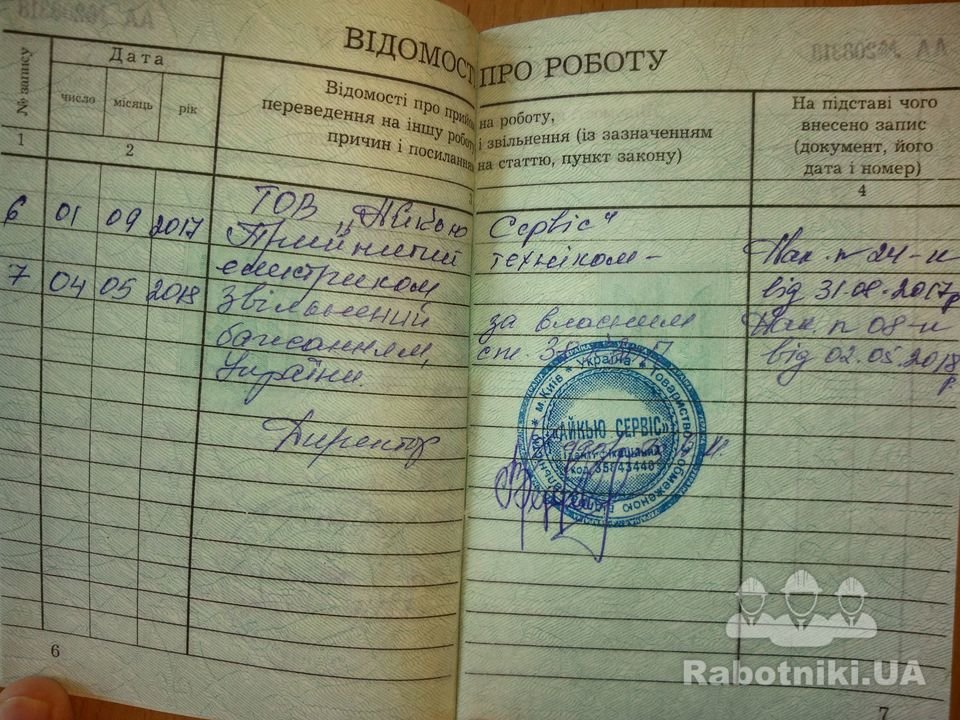 ВІДОМОСТ ПРО РОБОТУ
№ запису
Дата
число
місяць
рік
Відомості про прийо на роботу,
переведення на іншу робот і звільнення (із зазначенням
причин і посилання на статтю, пункт закону)
На підставі чого
внесено запис
(документ, його
дата і номер)
1 2 4
ТОВ „Айкью Сервіс"
6 01 09 2017 Прийнятий техніком – Нак. п 24-к
електриком від 31.08.2017р
7 04 05 2018 Звільнений за власним Нак. п 08-к
бажанням, ст. від 02.05.2018
України. р
Директор
м.Київ * Україна * Товариство з обмеженою
"АЙКЬЮ СЕРВІС"
Ідентифікаційний
код 35843448
6
7
Rabotniki.UA